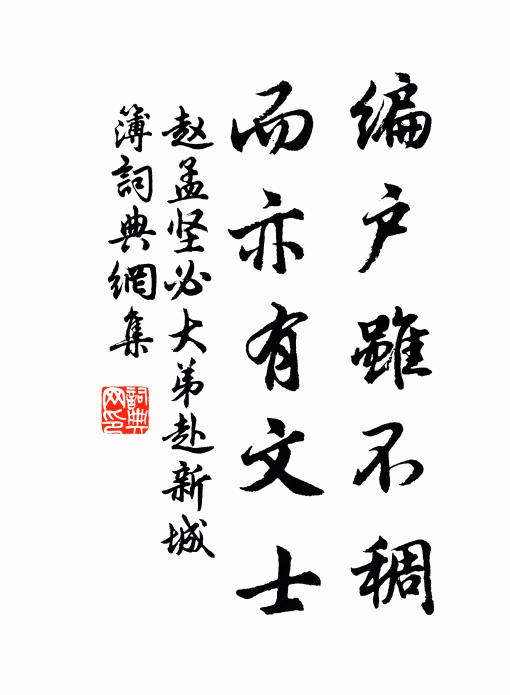 编户雖不稠
而亦有文士
赵孟坚必大弟赴新城
簿詞典網集
詞典网印